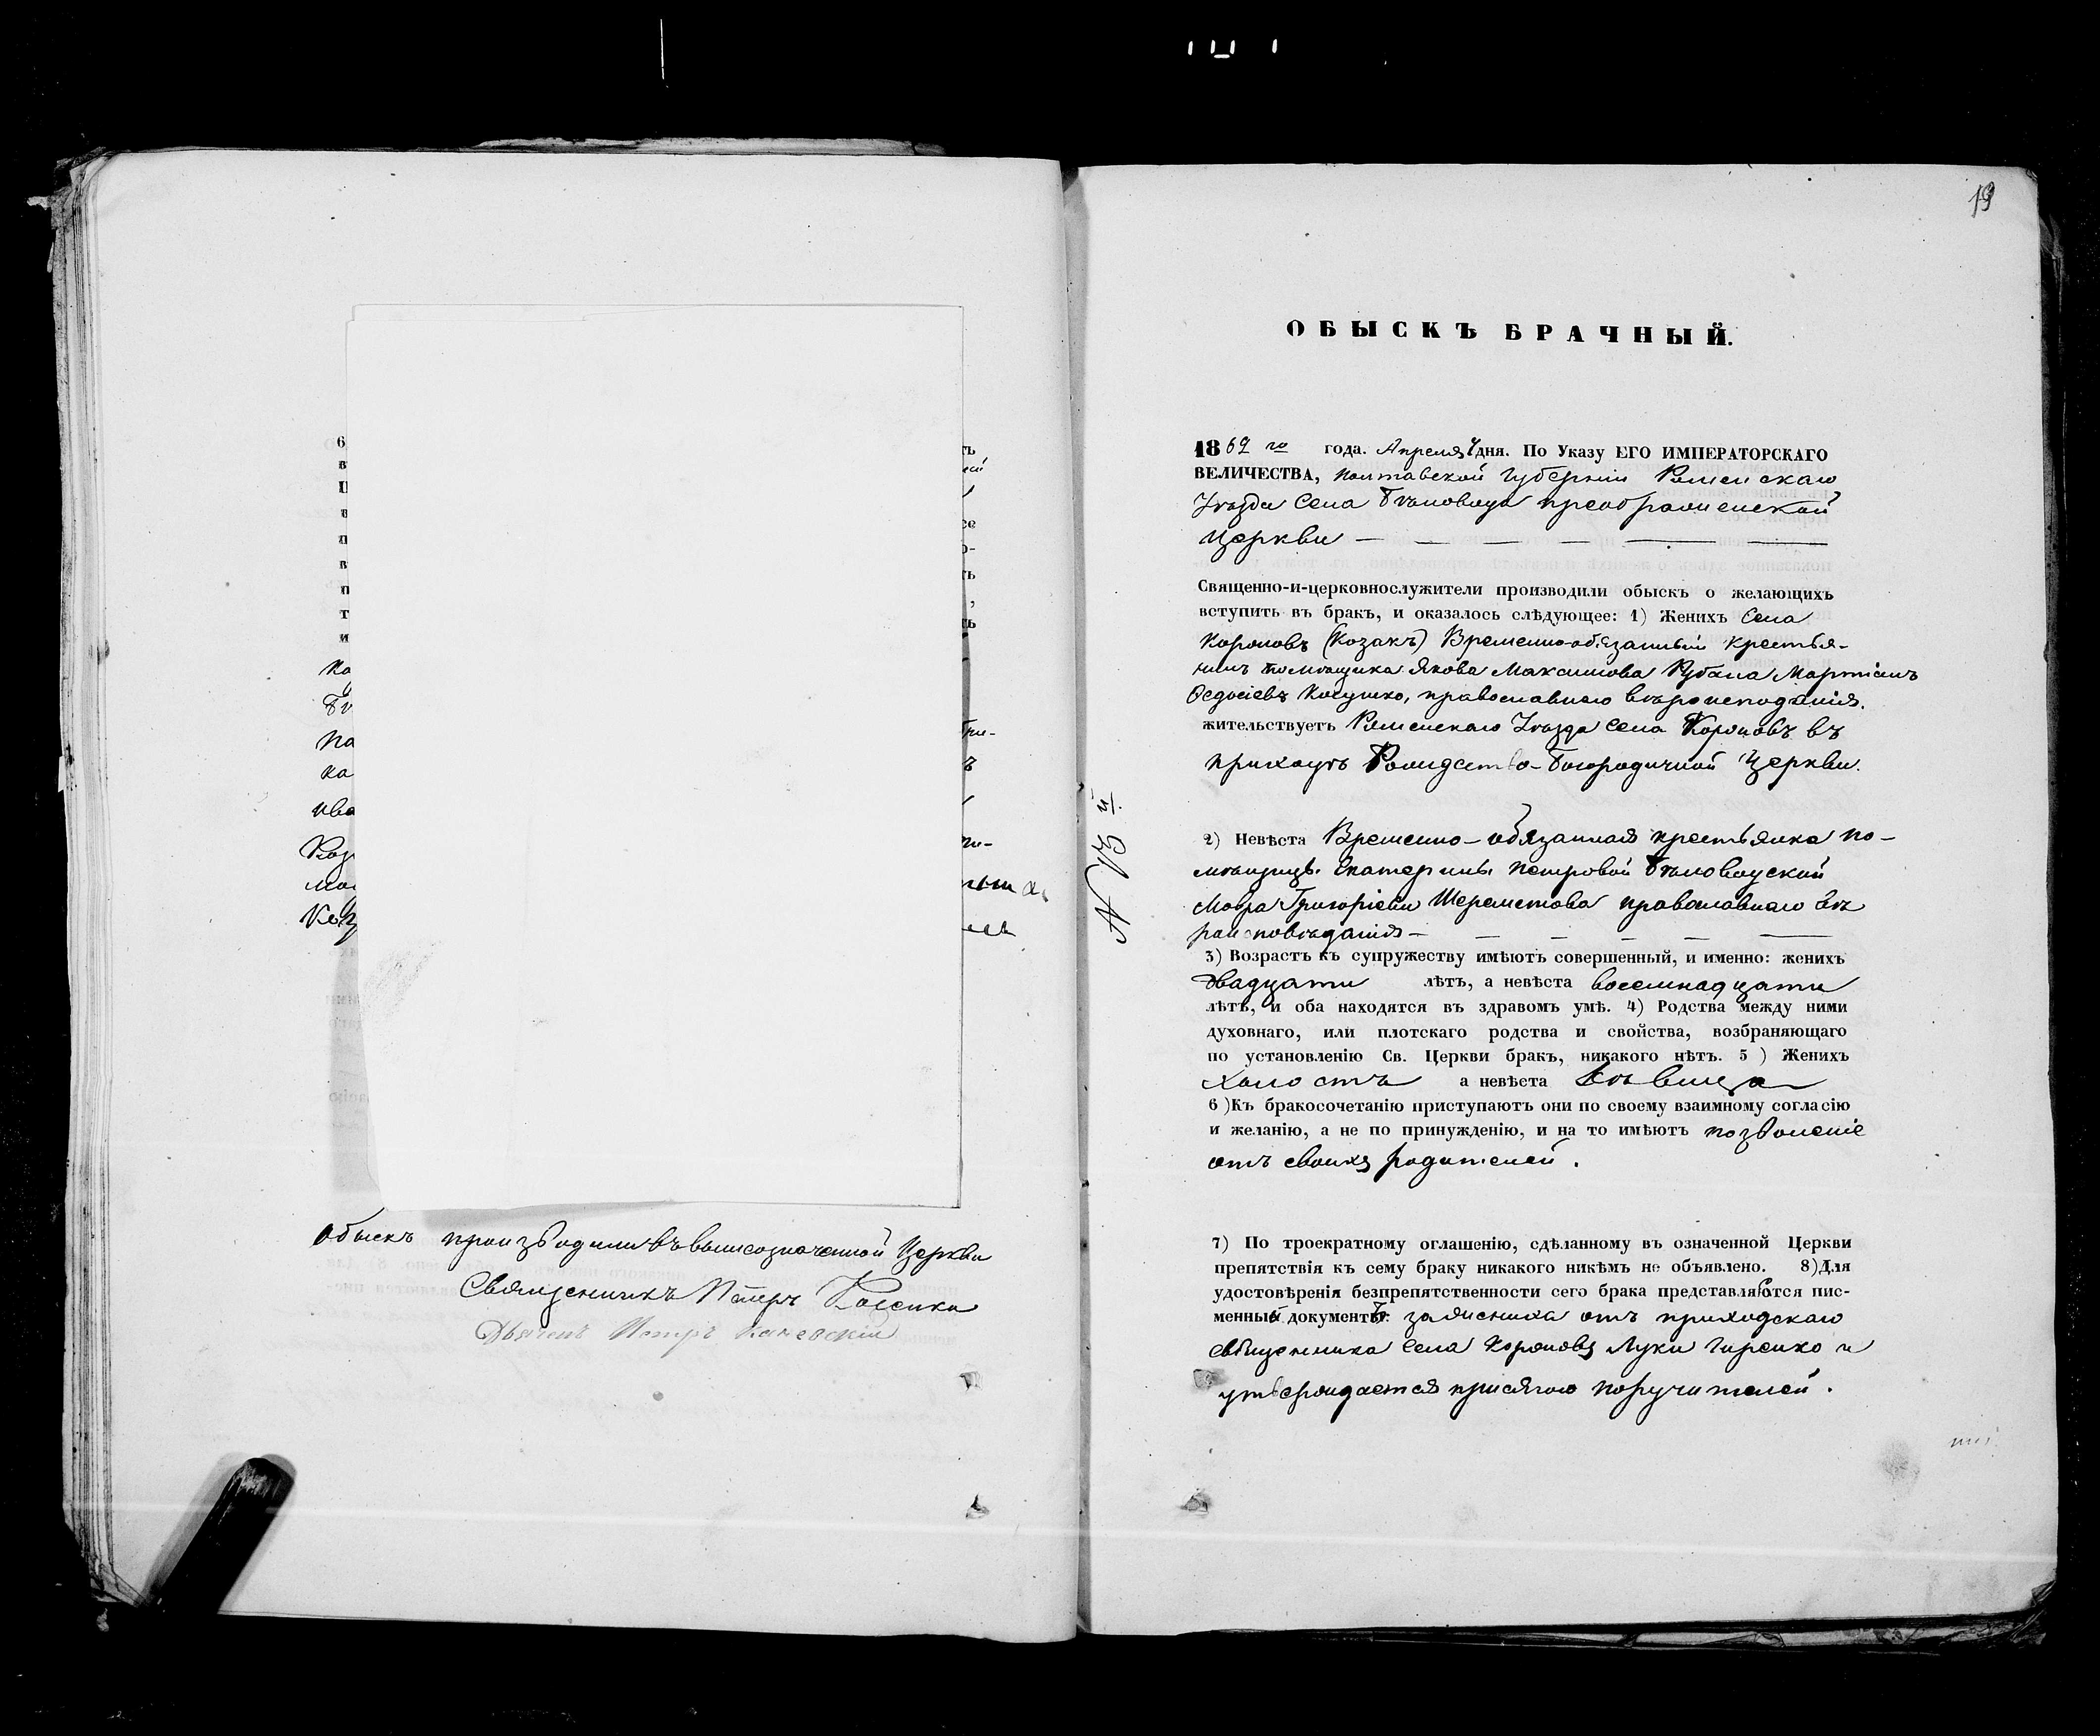 6
в
п
в
п
т
и
ка
по
ка
ива
ть
се
о-
ть
,
ть
ъ
Обыскъ производили въ вышеозначенной Церкви
Священникъ Петръ
Дьячекъ Петръ Каневскій
19
ОБЫСКЪ БРАЧНЫЙ.
1869 го года. Апреля дня. По Указу ЕГО ИМПЕРАТОРСКАГО
ВЕЛИЧЕСТВА, Полтавской Губерніи Роменскаго
Уѣзда Села Бѣловодъ Преображенской
Церкви — — — — — —
Священно-и-церковнослужители производили обыскъ о желающихъ
вступить въ бракъ, и оказалось слѣдующее: 1) Женихъ Села
(Козакъ) Временно-обязанный крестья-
нинъ помѣщика Якова Максимова Рубана Мартинъ
Федосіевъ православнаго вѣроисповѣданія.
жительствуетъ Роменскаго Уѣзда Села въ
приходѣ Рождество-Богородичной Церкви.
N 13 й.
2) Невѣста Временно-обязанная крестьянка по-
мѣщицы Екатерины Петровой Бѣловодской
Мавра Григоріева Шереметова православнаго вѣ
роисповѣданія — — — — — —
3) Возрастъ къ супружеству имѣютъ совершенный, и именно: женихъ
двадцати лѣтъ, а невѣста восемнадцати
лѣтъ, и оба находятся въ здравомъ умѣ. 4) Родства между ними
духовнаго, или плотскаго родства и свойства, возбраняющаго
по установленію Св. Церкви бракъ, никакого нѣтъ. 5) Женихъ
холостъ а невѣста дѣвица
6) Къ бракосочетанію приступаютъ они по своему взаимному согласію
и желанію, а не по принужденію, и на то имѣютъ позволеніе
отъ своихъ родителей.
7) По троекратному оглашенію, сдѣланному въ означенной Церкви
препятствія къ сему браку никакого никѣмъ не объявлено. 8) Для
удостовѣренія безпрепятственности сего брака представляются пис-
менный документъ: записника отъ приходскаго
священника Села Луки и
утверждается присягою поручителей.